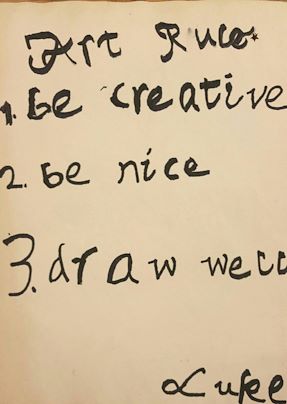 Art Rules
1. be creative
2. be nice
3. draw well
Luke